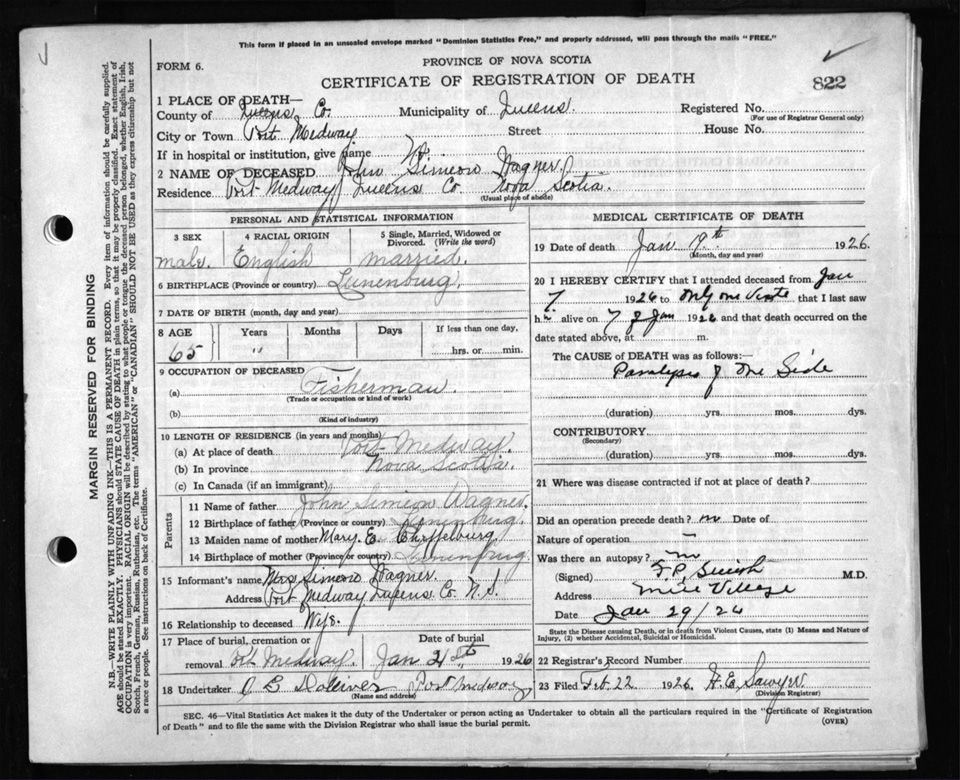 This form if placed in an unsealed envelope marked "Dominion Statistics Free," and properly addressed, will pass through the mails "FREE."
FORM 6.
PROVINCE OF NOVA SCOTIA
CERTIFICATE OF REGISTRATION OF DEATH
822
1 PLACE OF DEATH—
County of Queens Co. Municipality of Queens. Registered No.
(For use of Registrar General only)
City or Town Port Medway Street House No.
If in hospital or institution, give name
2 NAME OF DECEASED John Simeon Wagner
Residence Port Medway Queens Co Nova Scotia.
(Usual place of abode)
PERSONAL AND STATISTICAL INFORMATION
3 SEX 4 RACIAL ORIGIN 5 Single, Married, Widowed or Divorced. (Write the word)
male. English married.
6 BIRTHPLACE (Province or country) Lunenburg.
7 DATE OF BIRTH (month, day and year)
8 AGE Years Months Days If less than one day,
65 " hrs. or min.
9 OCCUPATION OF DECEASED
(a) Fisherman.
(Trade or occupation or kind of work)
(b)
(Kind of industry)
10 LENGTH OF RESIDENCE (in years and months)
(a) At place of death Port Medway
(b) In province Nova Scotia.
(c) In Canada (if an immigrant)
Parents
11 Name of father John Simeon Wagner
12 Birthplace of father (Province or country) Lunenburg.
13 Maiden name of mother Mary. E.
14 Birthplace of mother (Province or country) Lunenburg
15 Informant's name Mrs Simeon Wagner.
Address Port Medway Queens Co. N.S
16 Relationship to deceased Wife.
17 Place of burial, cremation or Date of burial
removal Port Medway. Jan 21st 1926
18 Undertaker Port Medway
(Name and address)
MEDICAL CERTIFICATE OF DEATH
19 Date of death Jan 1926
(Month, day and year)
20 I HEREBY CERTIFY that I attended deceased from Jan
7. 1926 to only one visit that I last saw
h alive on 7 Jan 1926 and that death occurred on the
date stated above, at m.
The CAUSE OF DEATH was as follows:—
Paralysis of one Side
(duration) yrs. mos. dys.
CONTRIBUTORY.
(Secondary)
(duration) yrs. mos. dys.
21 Where was disease contracted if not at place of death?
Did an operation precede death? no Date of
Nature of operation
Was there an autopsy? no
(Signed) F.P. Smith M.D.
Address Mill Village
Date Jan 29/26
State the Disease causing Death, or in death from Violent Causes, state (1) Means and Nature of Injury, (2) whether Accidental, Suicidal or Homicidal.
22 Registrar's Record Number
23 Filed Feb 22 1926. H.E. Sawyer
(Division Registrar)
SEC. 46—Vital Statistics Act makes it the duty of the Undertaker or person acting as Undertaker to obtain all the particulars required in the "Certificate of Registration
of Death" and to file the same with the Division Registrar who shall issue the burial permit.
(OVER)
MARGIN RESERVED FOR BINDING
N.B.—WRITE PLAINLY WITH UNFADING INK—THIS IS A PERMANENT RECORD. Every item of information should be carefully supplied.
AGE should be stated EXACTLY. PHYSICIANS should STATE CAUSE OF DEATH in plain terms, so that it may be properly classified. Exact statement of
OCCUPATION is very important. RACIAL ORIGIN will be described by stating to what people or tongue the deceased person belonged, whether English, Irish,
Scotch, French, German, Russian, Ruthenian, etc. The terms "AMERICAN" or "CANADIAN" SHOULD NOT BE USED as they express citizenship but not
a race or people. See instructions on back of Certificate.